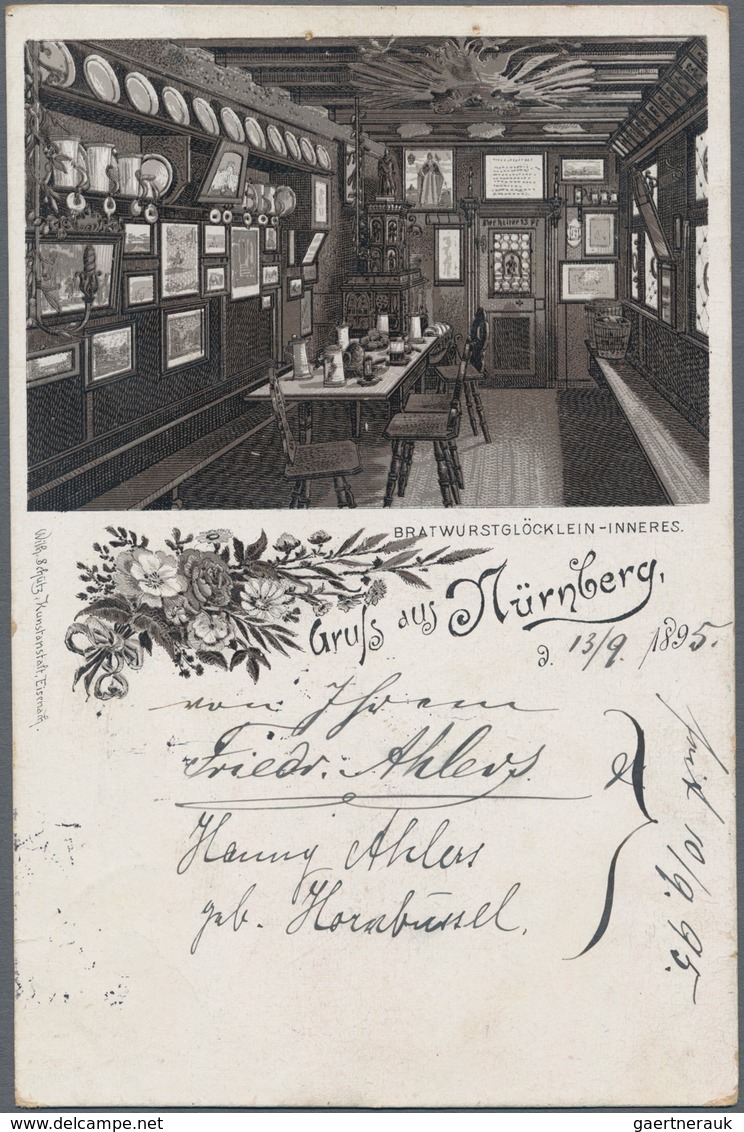 BRATWURSTGLÖCKLEIN-INNERES.
Gruß aus Nürnberg,
d. 13/9. 1895.
von Ihrem
Friedr. Ahlers
Hanny Ahlers
geb. Hornbüssel.
seit 10/9. 95.
Wilh. Schütz, Kunstanstalt, Eisenach.
delcampe.net
gaertnerauk